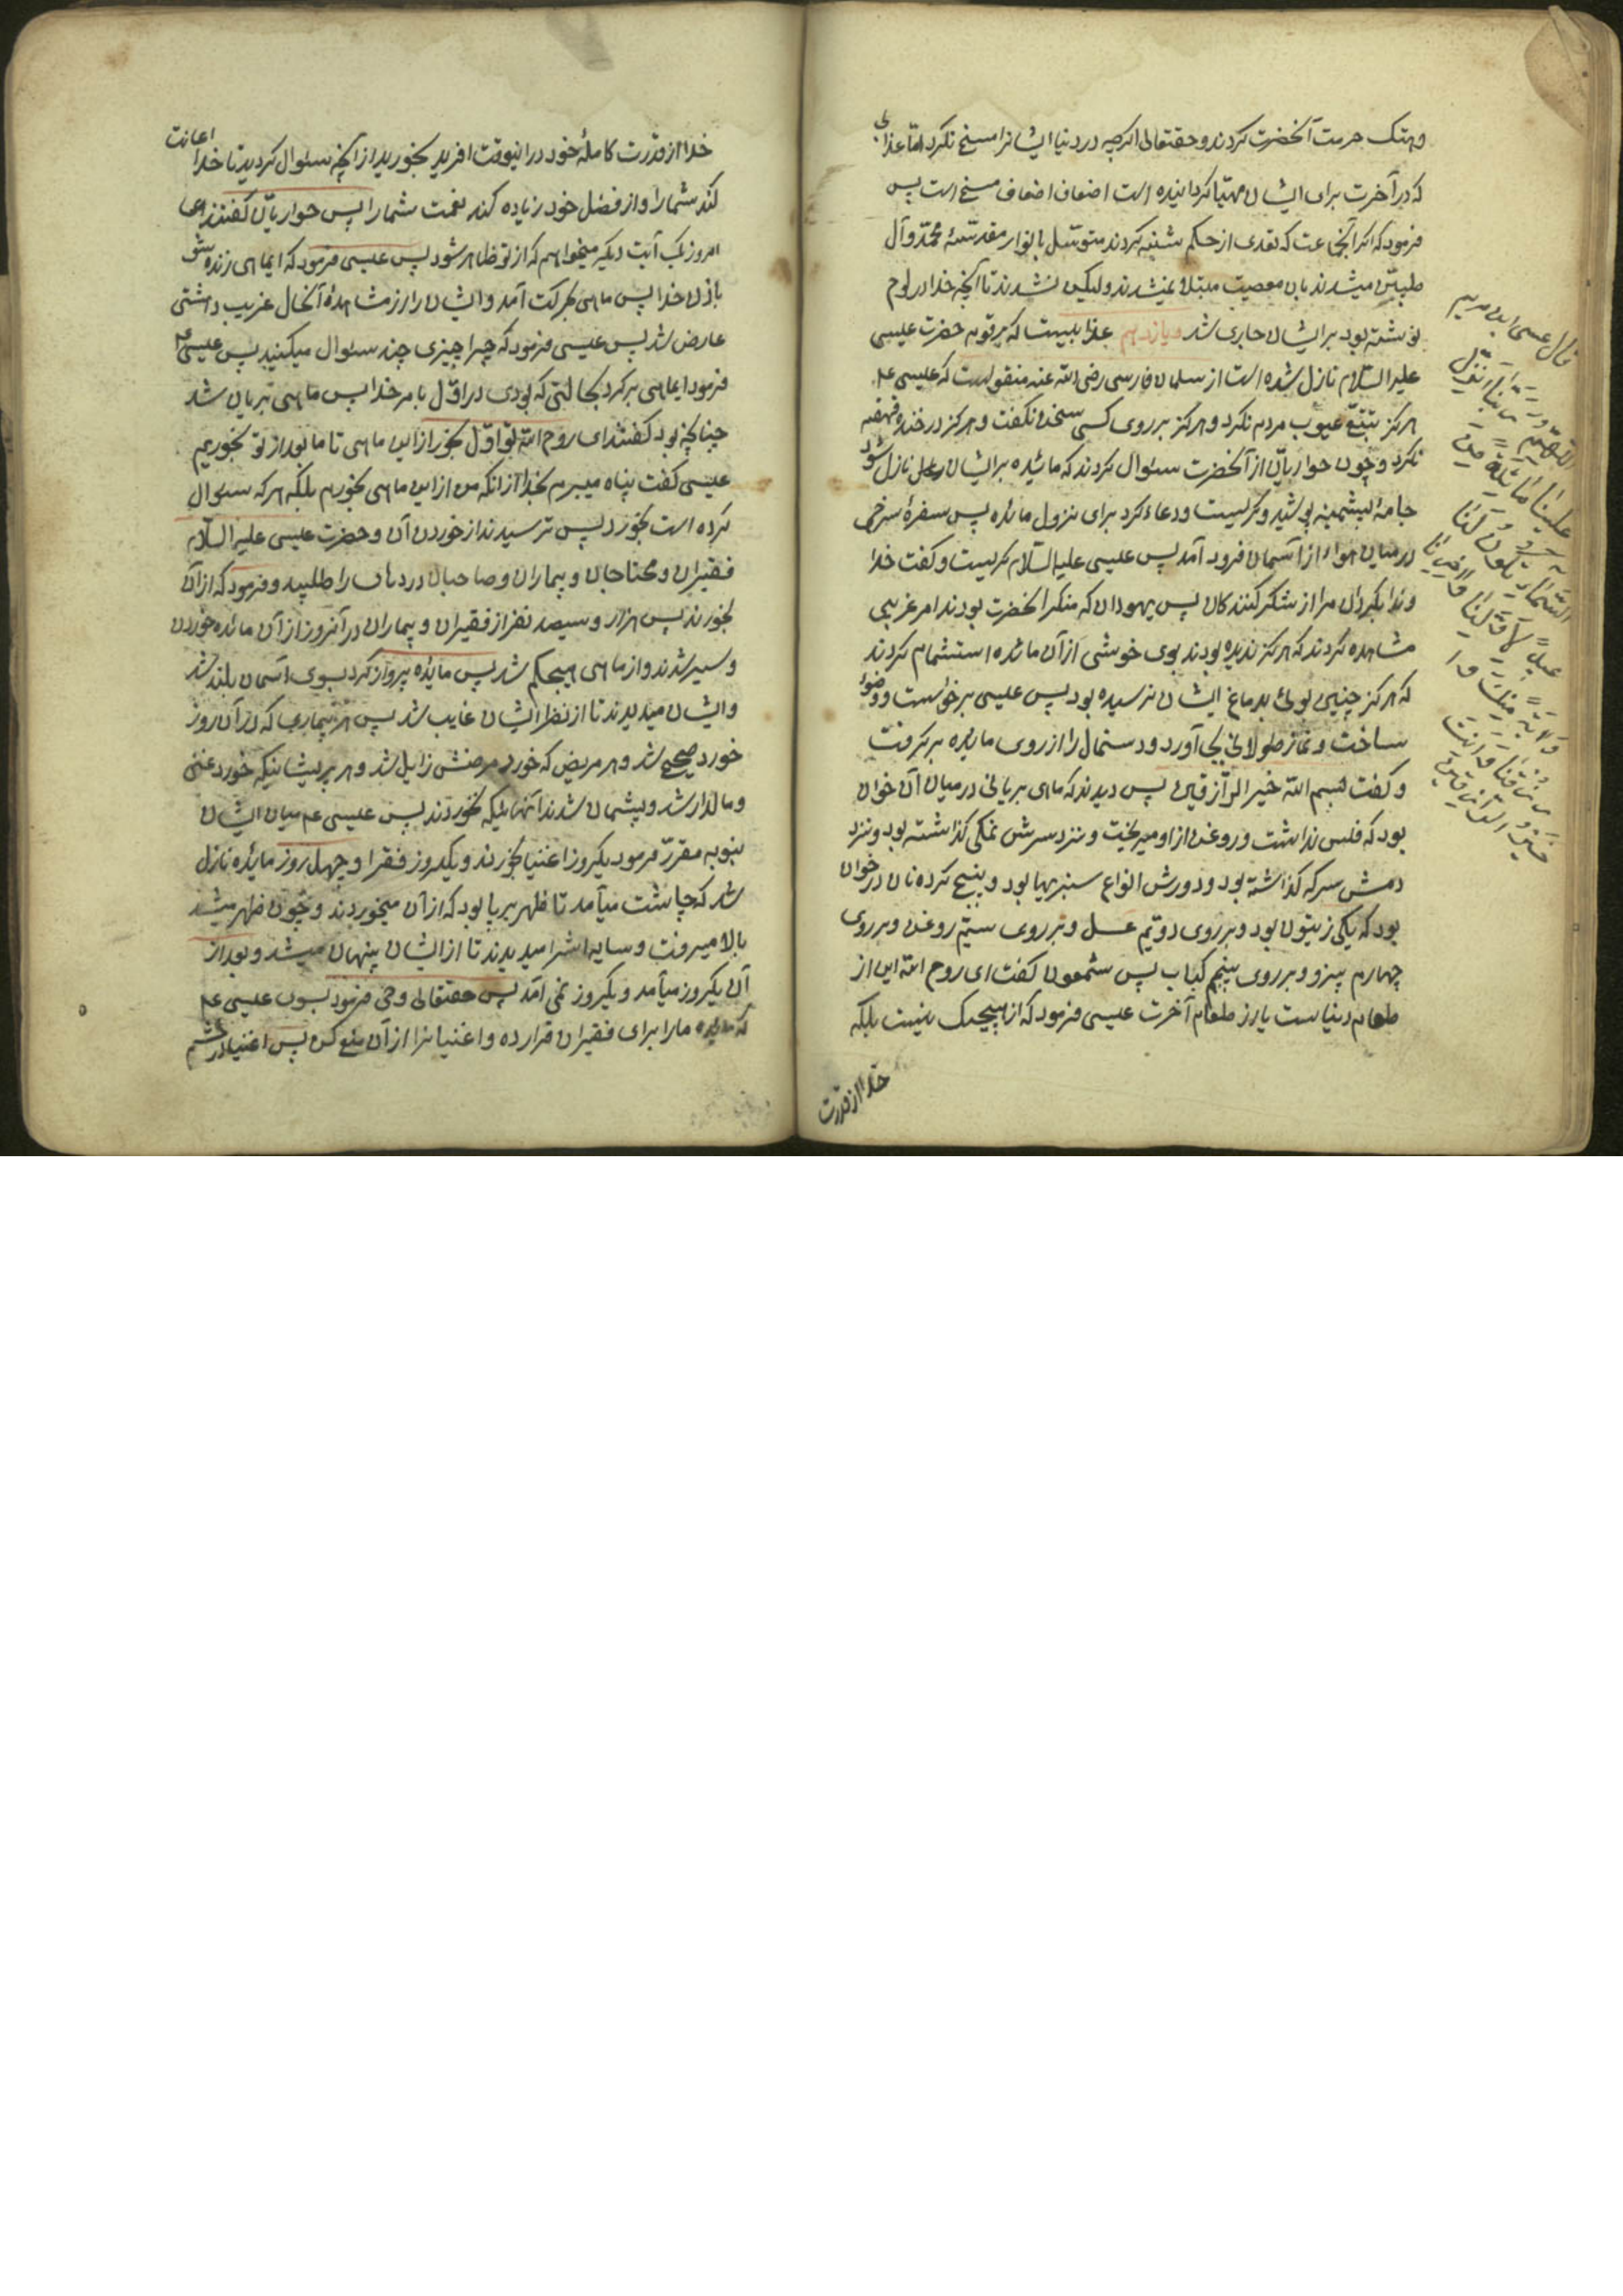 و هتک حرمت آنحضرت کردند و حقتعالی اکرچه در دنیا ایشانرا مسخ نکرد اما عذابی
که در آخرت برای ایشان مهیا کردانیده است اضعاف اضعاف مسخ است پس
فرمود که اکر آنجماعت که تعدی از حکم شنبه کردند متوسل بانوار مقدسهٔ محمد و آل
طیبین میشدند بان معصیت مبتلا نمیشدند ولیکن نشدند تا آنچه خدا در لوح
نوشته بود بر ایشان جاری شد و یازدهم عذابیست که بر قوم حضرت عیسی
علیه السلام نازل شده است از سلمان فارسی رضی الله عنه منقولست که عیسی ع م
هرکز تتبع عیوب مردم نکرد و هرکز بر روی کسی سخن نکفت و هرکز در خنده قهقهه
نکرد و چون حواریان از آنحضرت سئوال کردند که مائده بر ایشان نازل شود
جامهٔ پشمینه پوشید و کریست و دعاء کرد برای نزول مائده پس سفرهٔ سرخی
در میان هواء از آسمان فرود آمد پس عیسی علیه السلام کریست و کفت خدا
وندا بکردان مرا از شکر کنندکان پس یهودان که منکر آنحضرت بودند امر غریبی
مشاهده کردند که هرکز ندیده بودند بوی خوشی از آن مائده استشمام کردند
که هرکز چنین بوئ بدماغ ایشان نرسیده بود پس عیسی برخواست و وضوء
ساخت و نماز طولانی بجای آورد و دستمال را از روی مایده برکرفت
و کفت بسم الله خیر الرازقین پس دیدند که ماهی بریانی در میان آن خوان
بود که فلس نداشت و روغن از او میریخت و نزد سرش نمکی کذاشته بود و نزد
دمش سرکه کذاشته بود و دورش انواع سبزیها بود و پنج کرده نان در خوان
بود که یکی زیتون بود و بر روی دوتم عسل و بر روی سیم روغن و بر روی
چهارم پنیر و بر روی پنجم کباب پس شمعون کفت ای روح الله این از
طعام دنیاست یا از طعام آخرت عیسی فرمود که از هیچیک نیست بلکه
خدا از قدرت
قال عیسی ابن مریم
اللهم ربنا انزل
علینا مائدة من
السماء تکون لنا
عیدا لاولنا و آخرنا
و آیة منک و ا
رزقنا و انت
خیر الرازقین
خدا از قدرت کاملهٔ خود در اینوقت افرید بخورید از آنچه سئوال کردید تا خدا اعانت
کند شما را و از فضل خود زیاده کند نعمت شما را پس حواریان کفتند ای
امروز یک آیت دیکر میخواهیم که از تو ظاهر شود پس عیسی فرمود که ایماهی زنده شو
باذن خدا پس ماهی بحرکت آمد و ایشان را از مشاهدهٔ آنحال غریب دهشتی
عارض شد پس عیسی فرمود که چرا چیزی چند سئوال میکنید پس عیسی
فرمود ایماهی برکرد بحالتی که بودی در اول بامر خدا پس ماهی بریان شد
چنانچه بود کفتند ای روح الله تو اول بخور از این ماهی تا ما بعد از تو بخوریم
عیسی کفت پناه میبرم بخدا از انکه من از این ماهی بخورم بلکه هرکه سئوال
کرده است بخورد پس ترسیدند از خوردن آن و حضرت عیسی علیه السلام
فقیران و محتاجان و بیماران و صاحبان دردها را طلبید و فرمود که از آن
بخورند پس هزار و سیصد نفر از فقیران و بیماران در آنروز از آن مائده خوردن
و سیر شدند و از ماهی هیچکم نشد پس مایده پرواز کرد بسوی اسمان بلند شد
و ایشان میدیدند تا از نظر ایشان غایب شد پس هر بیماری که در آن روز
خورد صحیح شد و هر مریض که خورد مرضش زایل شد و هر پریشانیکه خورد غنی
و مالدار شد و پشیمان شدند آنهائیکه نخوردند پس عیسی ع م میان ایشان
بنوبه مقرر فرمود یکروز اغنیا بخورند و یکروز فقرا و چهل روز مایده نازل
شد که چاشت میآمد تا ظهر برپا بود که از آن میخوردند و چون ظهر میشد
بالا میرفت و سایه اشرا میدیدند تا از ایشان پنهان میشد و بعد از
آن یکروز میآمد و یکروز نمی آمد پس حقتعالی وحی فرمود بسوی عیسی ع م
که مایده ما را برای فقیران قرار ده و اغنیا را از آن منع کن پس اغنیا در خشم